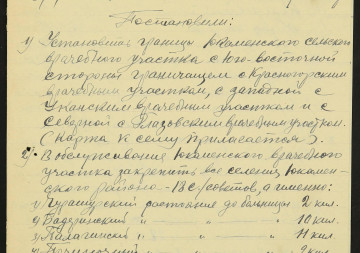 Постановили:
1) Установить границы Юкаменского сельского
врачебного участка с Юго-восточной
стороны граничащем с Красногорским
врачебным участкам, с западной с
Уканским врачебным участкам и с
северной с Глазовским врачебным участком.
(Карта к сему прилагается).
2) В обслуживание Юкаменского врачебного
участка закрепить все селения Юкамен-
ского района - 13 с/советов, а именно:
1) Пурашурский растояние до больницы 2 кил.
2) Бадеринский " — " — 10 кил.
3) Палагинский " — " 11 кил.
" — " 9 кил.